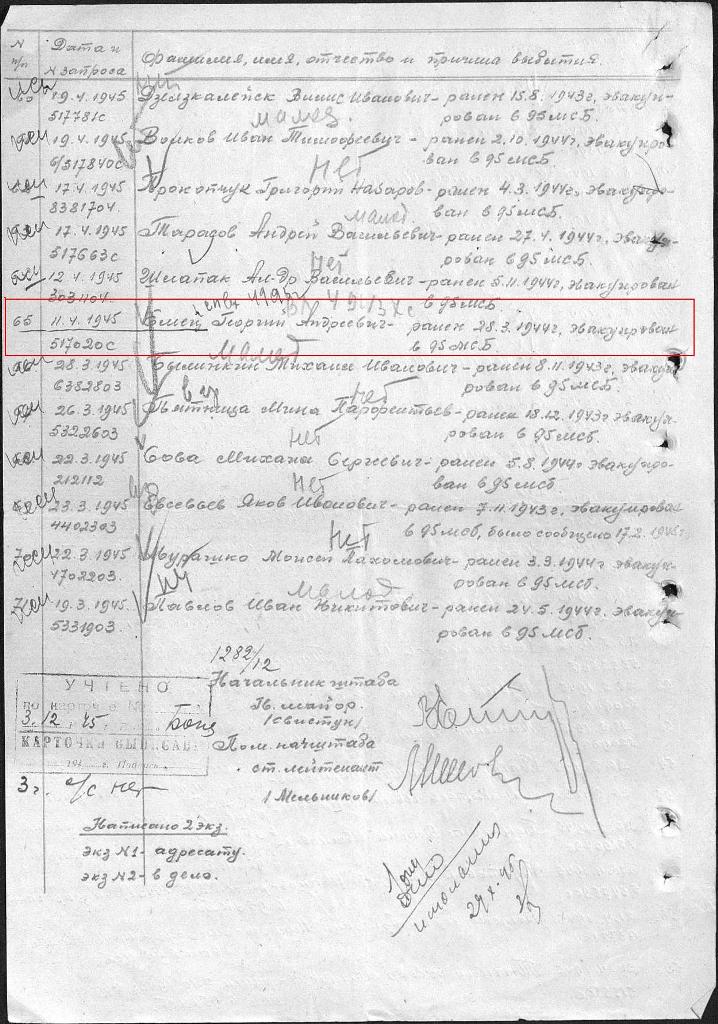 N п/п Дата и N запроса Фамилия, имя, отчество и причина выбытия.
19.4.1945 Вилис Иванович - ранен 15.8.1943г, эвакуи-
517781с рован в 95 мсб.
19.4.1945 Волков Иван Тимофеевич - ранен 2.10.1944г, эвакуиро-
б/517840с ван в 95 мсб
Нет
17.4.1945 Прокопчук Григорий - ранен 4.3.1944г, эвакуиро-
8381704. ван в 95 мсб
17.4.1945 Тарадов Андрей Васильевич - ранен 27.4.1944г, эвакуи-
517663с рован в 95 мсб.
Нет
12.4.1945 Шлапак Ал-др Васильевич - ранен 5.11.1944г, эвакуирован
3031104. в 95 мсб.
65 11.4.1945 Емец Георгий Андреевич - ранен 28.3.1944г, эвакуирован
517020с в 95 мсб
28.3.1945 Былинкин Михаил Иванович - ранен 8.11.1943г, эвакуи-
6382803 рован в 95 мсб.
Нет
26.3.1945 Пятница Мина - ранен 18.12.1943г эвакуи-
5322603 рован в 95 мсб.
Нет
22.3.1945 Сова Михаил Сергеевич - ранен 5.8.1944г эвакуиро-
212112 ван в 95 мсб.
Нет
23.3.1945 Евсевьев Яков Иванович - ранен 7.11.1943г, эвакуирован
4402303 в 95 мсб, было сообщено 17.2.1945г
Нет
22.3.1945 Моисей Пахомович - ранен 3.3.1944г, эвакуи-
4702203. рован в 95 мсб.
19.3.1945 Павлов Иван Никитович - ранен 24.5.1944г, эвакуи-
5331903 рован в 95 мсб.
1282/12
Начальник штаба
Гв. майор.
/Свистун/
Пом. начштаба
ст. лейтенант
/Мельников/
УЧТЕНО
по карточке №
3. 12 45
КАРТОЧКИ
194 г. Подпись
3г. о/с нет
Написано 2 экз.
экз N1 - адресату.
экз N2 - в дело.